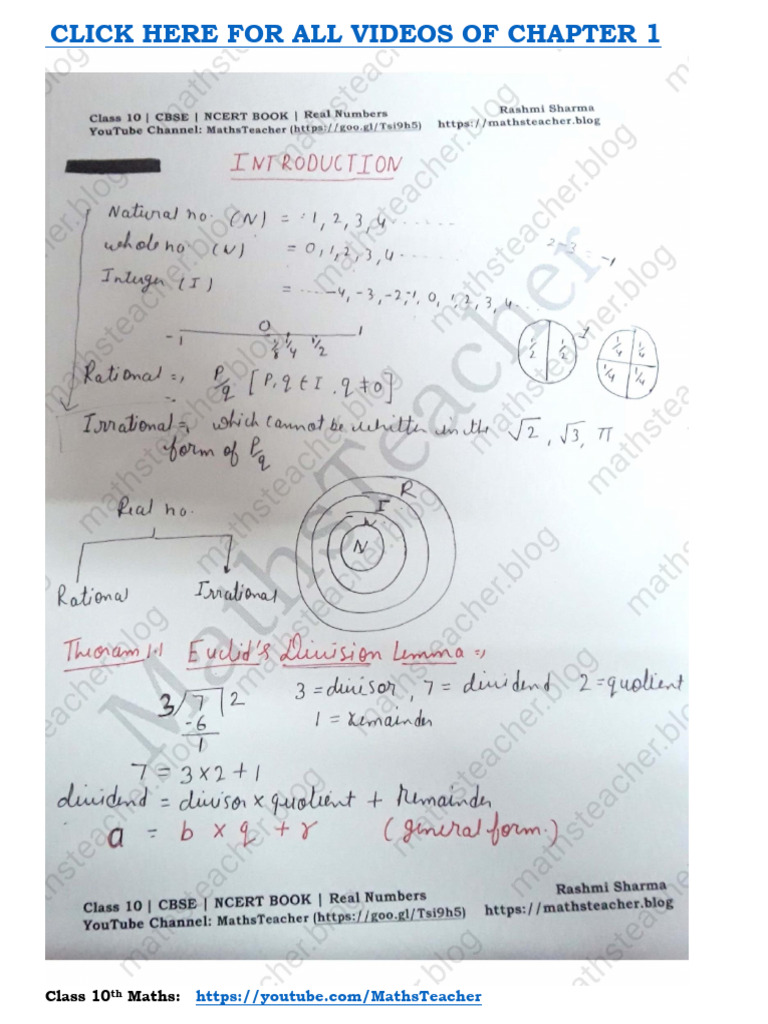 CLICK HERE FOR ALL VIDEOS OF CHAPTER 1
Class 10 | CBSE | NCERT BOOK | Real Numbers
Rashmi Sharma
YouTube Channel: MathsTeacher (https://goo.gl/Tsi9h5)
https://mathsteacher.blog
INTRODUCTION
Natural no. (N) = 1, 2, 3, 4 ......
whole no (W) = 0, 1, 2, 3, 4 ......
2-3 = -1
Intuger (I) = ......-4, -3, -2, -1, 0, 1, 2, 3, 4...
-1 0 1/8 1/4 1/2 1
1/2 1/2 1
1/4 1/4 1/4 1/4
Rational =, P/q [P, q ∈ I, q ≠ 0]
Irrational =, which cannot be written in the √2, √3, π
form of P/q
Real no.
R
I
W
N
Rational Irrational
Theoram 1.1 Euclid's Division Lemma =,
3 = divisor, 7 = dividend 2 = quotient
1 = remainder
3 7 2
-6
1
7 = 3 x 2 + 1
dividend = divisor x quotient + Remainder
a = b x q + r (general form.)
Class 10 | CBSE | NCERT BOOK | Real Numbers
Rashmi Sharma
YouTube Channel: MathsTeacher (https://goo.gl/Tsi9h5)
https://mathsteacher.blog
MathsTeacher
mathsteacher.blog
Class 10th Maths: https://youtube.com/MathsTeacher